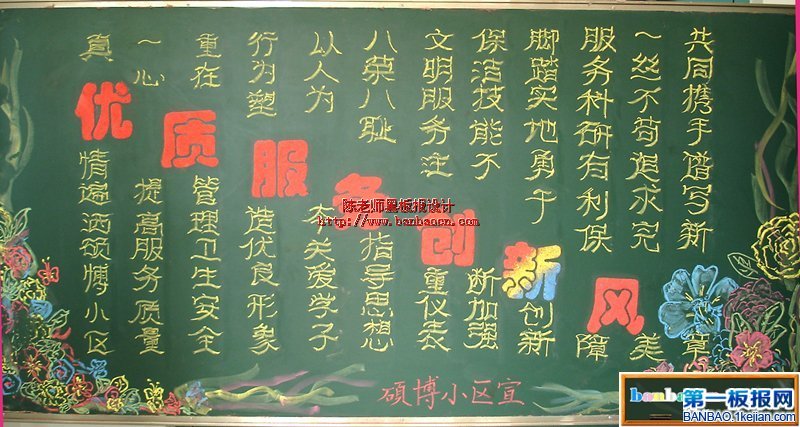 优质服务创新风
真情遍洒硕博小区
一心提高服务质量
重在管理卫生安全
行为塑造优良形象
以人为本关爱学子
八荣八耻指导思想
文明服务注重仪表
保洁技能不断加强
脚踏实地勇于创新
服务科研有利保障
一丝不苟追求完美
共同携手谱写新章
硕博小区宣
陈老师黑板报设计
http://www.banbaocn.com/
第一板报网
BANBAO.1kejian.com